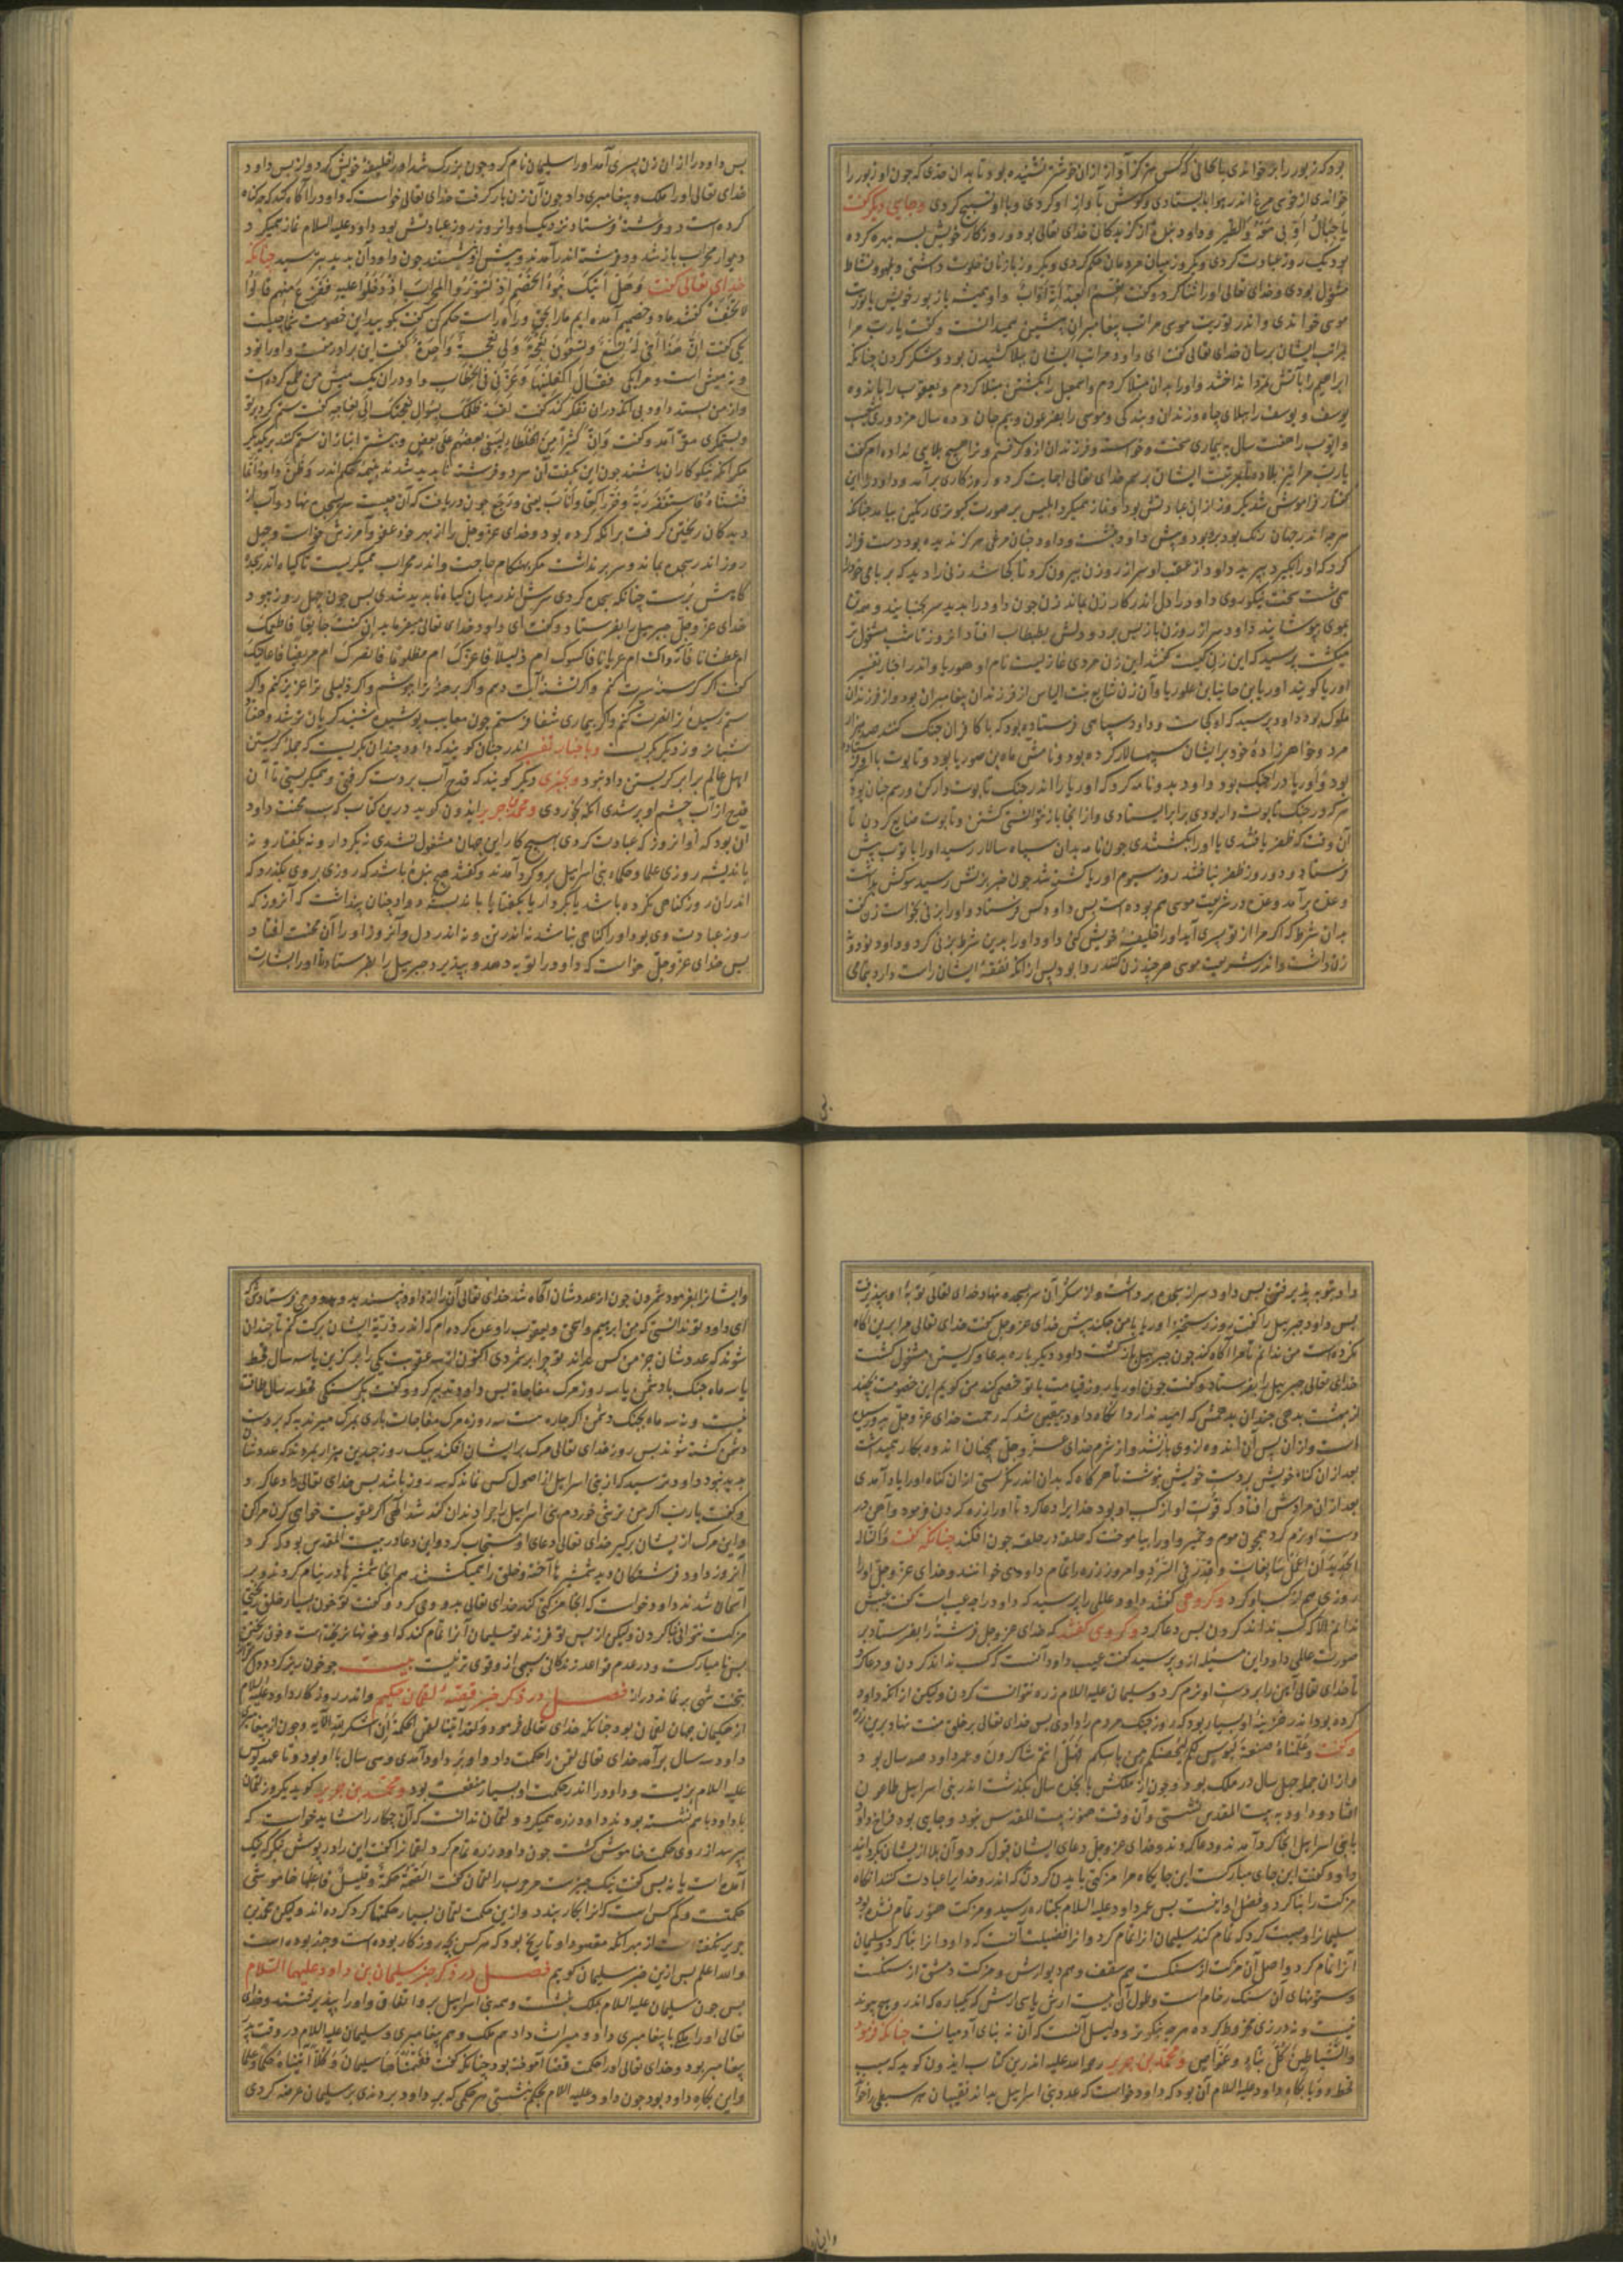 بود که زبور را برخواندی بالحانی که کس هرگز آواز ازان خوشتر نشنیده بود و تا بدان حدی که چون او زبور را
خواندی از خوشی مرغ اندر هوا بایستادی و گوش بآواز او کردی و با او تسبیح کردی و جایی دیگر گفت
یا جبال اوبی معه والطیر و داود علیه از گزیدگان خدای تعالی بود و روزگار خویش بسه بهره کرده
بود یک روز عبادت کردی و یکروز میان مردمان حکم کردی و یکروز با زنان خلوت داشتی و بلهو و نشاط
مشغول بودی و خدای تعالی اورا ثنا کرد و گفت نعم العبد انه اواب و او همیشه باز بور خویش با توریت
موسی خواندی و اندر توریت موسی مراتب پیغامبران پیشین همیدانست و گفت یا رب مرا
بمراتب ایشان برسان خدای تعالی گفت ای داود مراتب ایشان ببلا کشیدن بود و شکر کردن چنانکه
ابراهیم را بآتش نمرود انداختند و اورا بدان مبتلا کردم و اسمعیل را بکشتن مبتلا کردم و یعقوب را باندوه
یوسف و یوسف را ببلای چاه و زندان و بندگی و موسی را بفرعون و بیم جان و ده سال مزدوری شعیب
و ایوب را هفت سال به بیماری سخت و خواسته و فرزندان ازو گرفتم و ترا هیچ بلایی نداده ام گفت
یا رب مرا نیز بلا ده تا بمرتبت ایشان برسم خدای تعالی اجابت کرد و روزگاری برآمد و داود را این
گفتار فراموش شد یکروز ازانی عبادتش بود و نماز همیکرد ابلیس بر صورت کبوتری رنگین بیامد چنانکه
هرچه اندر جهان رنگ بود برو بود و پیش داود بنشست و داود چنان مرغی هرگز ندیده بود دست فراز
کرد که اورا بگیرد بپرید داود از عقب او سر از روزن بیرون کرد تا کجا شد زنی را دید که بر بامی خود را
می شست سخت نیکوروی داود را دل اندر کار زن بماند زن چون داود را بدید سر بجنبانید و همه تن
بموی بپوشانید داود سر از روزن باز پس برد و دلش بطبطاب افتاد آنروز تا شب مشغول تر
میگشت پرسید که این زن کیست گفتند این زن مردی غازیست نام او اوریا و اندر اخبار تفسیر
اوریا گویند
ملوک بود داود پرسید که او کجاست و داود سپاهی فرستاده بود که با کافران جنگ کنند
مرد و خواهرزاده خود بر ایشان سپهسالار کرده بود و نامش
بود و اوریا در آن جنگ بود داود بدو نامه کرد که اوریا را اندر جنگ تابوت دار کن و رسم چنان بود
هر که در جنگ تابوت دار بودی برابر ایستادی و ازانجا باز نتوانستی گشتن و تابوت ضایع کردن تا
آن وقت که ظفر یافتندی یا اورا بکشتندی چون نامه بدان سپاه سالار رسید اورا با توت پیش
فرستاد و دو روز ظفر نیافتند روز سیوم اوریا کشته شد چون خبر بزنش رسید سوکش بداشت
و عده برآمد و عده در شریعت موسی هم بوده است پس داود کس فرستاد و اورا بزنی بخواست زن گفت
بدان شرط که اگر مرا از تو پسری آید اورا خلیفه خویش کنی داود اورا بدین شرط بزنی کرد و داود نود و نه
زن داشت و اندر شریعت موسی هر چند زن کنند روا بود پس ازانکه نفقه ایشان راست دارد بتمامی
پس داود را از ان زن پسری آمد اورا سلیمان نام کرد و چون بزرگ شد اورا خلیفه خویش کرد و از پس داود
خدای تعالی اورا ملک و پیغامبری داد چون آن زن بار گرفت خدای تعالی خواست که داود را آگاه کند که چه گناه
کرده است دو فرشته فرستاد نزدیک او و آنروز روز عبادتش بود داود علیه السلام نماز همیکرد
دیوار محراب باز شد و دو فرشته اندر آمدند و پیش او بنشستند چون داود آن بدید بترسید چنانکه
خدای تعالی گفت و هل اتیک نبؤا الخصم اذ تسوروا المحراب اذ دخلوا علی داود ففزع منهم قالوا
لا تخف گفتند ما دو خصمیم آمده ایم ما را بحق و راه راست حکم کن گفت بگویید این خصومت شما چیست
یکی گفت ان هذا اخی له تسع و تسعون نعجة ولی نعجة واحدة گفت این برادر منست و اورا نود
و نه میش است و مرا یکی فقال اکفلنیها و عزنی فی الخطاب و او در ان یک میش من طمع کرده است
و از من بستد داود بی انکه در ان تفکر کند گفت لقد ظلمک بسؤال نعجتک الی نعاجه گفت ستم کرد بر تو
و بستمکری حق آمد و گفت و ان کثیرا من الخلطاء لیبغی بعضهم علی بعض و بیشتر انبازان ستم کنند بر یکدیگر
مگر آنکه نیکوکاران باشند چون این بگفت آن هردو فرشته ناپدید شدند و ظن داود انما
فتناه فاستغفر ربه و خر راکعا و اناب یعنی و رجع چون دریافت که آن چیست سر بسجده نهاد و آب از
دیدگان ریختن گرفت برانکه کرده بود و خدای عز و جل را از بهر خود عفو و آمرزش خواست و چهل
روز اندر سجده بماند و سر بر نداشت مگر بهنگام حاجت و اندر محراب همیگریست تا گیاه اندر سجده
گاهش برست چنانکه سجده کردی سرش اندر میان گیاه ناپدید شدی پس چون چهل روز ببود
خدای عز و جل جبریل را بفرستاد و گفت ای داود خدای تعالی میفرماید ان کنت جایعا فاطعمک
ام عطشانا فارواک ام عریانا فاکسوک ام ذلیلا فاعزک ام مظلوما فانصرک ام مریضا فاعافیک
گفت اگر گرسنه سیرت کنم و اگر تشنه آبت دهم و اگر برهنه ترا بپوشم و اگر ذلیلی ترا عزیز کنم و اگر
ستم رسیده ترا نصرت کنم و اگر بیماری شفا فرستم چون معایب پوشیده شنید گریان تر شد و هفتاد
شبانروز دیگر بگریست و باخبار تفسیر اندر چنان گویند که داود چندان بگریست که جمله گریستن
اهل عالم برابر گریستن داود نبود و بخبری دیگر گویند که قدح آب بر دست گرفتی و همیگریستی تا آن
قدح از آب چشم او پر شدی آنگه بخوردی و محمد بن جریر ایذون گوید درین کتاب که سبب محنت داود
آن بود که او آنروز که عبادت کردی بهیچ کار این جهان مشغول نشدی نه بکردار و نه بگفتار و نه
باندیشه روزی علما و حکماء بنی اسراییل برو گرد آمدند و گفتند هیچ بنده باشد که روزی بر وی بگذرد که
اندران روز گناهی نکرده باشد یا بکردار یا بگفتار یا باندیشه داود چنان پنداشت که آنروز که
روز عبادت وی بود اورا گناهی نباشد نه اندر تن و نه اندر دل و آنروز اورا آن محنت افتاد
پس خدای عز و جل خواست که داود را توبه دهد و بپذیرد جبریل را بفرستاد تا اورا بشارت
داد بتوبه پذیرفتن پس داود سر از سجده برداشت و از شکر آن سر بسجده نهاد و خدای تعالی توبه او بپذیرفت
پس داود جبریل را گفت روز رستخیز اوریا با من چکند پیش خدای عز و جل گفت خدای تعالی مرا برین آگاه
نکرده است من ندانم تا مرا آگاه کند چون جبریل بازگشت داود دیگر باره بدعا و گریستن مشغول گشت
خدای تعالی جبریل را بفرستاد و گفت چون اوریا روز قیامت با تو خصمی کند من گویم این خصومت ببخشد
از بهشت بدهم چندان بدهمش که امید ندارد آنگاه داود بیقین شد که رحمت خدای عز و جل بدو رسیده
است و ازان پس آن اندوه ازوی باز شد و از شرم خدای عز و جل همچنان اندوهکار همیداشت
بعد ازان گناه خویش بر دست خویش نوشت تا هرگاه که بدان اندر نگریستی ازان گناه اورا یاد آمدی
بعد ازان مرادش افتاد که قوت او از کسب او بود خدایرا دعا کرد تا اورا زره کردن فرمود و آهن در
دست او نرم کرد همچون موم و خمیر و اورا بیاموخت که حلقه در حلقه چون افکند چنانکه گفت و النا له
الحدید ان اعمل سابغات و قدر فی السرد و امروز زره را تمام داودی خوانند و خدای عز و جل اورا
روزی هم از کسب او کرد و گروهی گفتند داود و عللی را بپرسید که داود را چه عیب است گفت عیبش
ندانم الا که کسب نداند کردن پس دعا کرد و گروهی گفتند که خدای عز و جل فرشته را بفرستاد بر
صورت عللی داود این مسئله ازو پرسید گفت عیب داود آنست که کسب نداند کردن و دعا کرد
تا خدای تعالی آهن را بر دست او نرم کرد و سلیمان علیه السلام زره نتوانست کردن ولیکن از انکه داود
کرده بود اندر خزینه او بسیار بود که روز جنگ مردم را دادی پس خدای تعالی بر خلق منت نهاد برین زره
و گفت و علمناه صنعة لبوس لکم لتحصنکم من باسکم فهل انتم شاکرون و عمر داود صد سال بود
و ازان جمله چهل سال در ملک بود و چون از ملکش یازده سال بگذشت اندر بنی اسراییل طاعون
افتاد و داود به بیت المقدس نشستی و آن وقت هنوز بیت المقدس نبود و جایی بود فراخ داود
با بنی اسراییل آنجا گرد آمدند و دعا کردند و خدای عز و جل دعای ایشان قبول کرد و آن بلا ازیشان بگردانید
داود گفت این جای مبارکست این جایگاه مرا مزگتی باید بنا کردن که اندرو خدایرا عبادت کنند آنگاه
مزگت را بنا کرد و فضل او اینست پس عمر داود علیه السلام بکناره رسید و مزگت هنوز تمام نشده بود
سلیمانرا وصیت کرد که تمام کند سلیمان آنرا تمام کرد و آنرا فضیلت آنست که داود آنرا بنا کرد و سلیمان
آنرا تمام کرد و اصل آن مزگت از سنگست هم سقف و هم دیوارش و مزگت دمشق از سنگست
و ستونهای آن سنگ رخام است و طول آن بیست ارش یا سی ارش که یکپاره که اندر و هیچ پیوند
نیست و نه درزی مخروط کرده هرچه نیکوتر و دلیل آنست که آن نه بنای آدمیانست چنانکه فرمود
والشیاطین کل بناء و غواص و محمد بن جریر رحمه الله علیه اندرین کتاب ایذون گوید که سبب
قحط و وبا بگاه داود علیه السلام آن بود که داود خواست که عدد بنی اسراییل بداند نقیبان هر سبطی را بخواند
و ایشانرا بفرمود شمردن چون از عددشان آگاه شد خدای تعالی آن را از داود نپسندید و بدو وحی فرستاد که
ای داود تو ندانستی که من ابرهیم و اسحق و یعقوب را وعده کرده ام که اندر ذریة ایشان برکت کنم تا چندان
شوند که عددشان جز من کس نداند تو چرا بر شمردی اکنون از سه عقوبت یکی را برگزین یا سه سال قحط
یا سه ماه جنگ با دشمن یا سه روز مرگ مفاجاة پس داود تدبیر کرد و گفت بگرسنگی قحط سه سال طاقت
نیست و نه سه ماه بجنگ دشمن اگر چاره نیست سه روزه مرگ مفاجات باری بمرگ میرند به که بر دست
دشمن کشته شوند پس روز خدای تعالی مرگ بر ایشان افکند بیک روز چندین هزار بمردند که عددشان
پدید نبود داود بترسید که از بنی اسراییل از اصول کس نماند که سه روز باشد پس خدای تعالی را دعا کرد
و گفت یا رب اگر من ترشی خوردم بنی اسراییل را چرا دندان کند شد الهی اگر عقوبت خواهی کردن مرا کن
و این مرگ ازیشان برگیر خدای تعالی دعای او مستجاب کرد و این دعا در بیت المقدس بود که کرد
آنروز داود فرشتگان دید شمشیرها آخته و خلق را همیکشتند هم آنجا شمشیرها در نیام کردند و بر
آسمان شدند داود خواست که آنجا مزگتی کند خدای تعالی بدو وحی کرد و گفت تو خون بسیار خلق ریختی
مزگت نتوانی بنا کردن ولیکن از پس تو فرزند تو سلیمان آنرا تمام کند که او خونها نریخته است و خون ریختن
بس نامبارکست و در عدم قواعد زندگانی سببی از و قوی تر نیست بیت چو خون ریزد
بتخت شهی بر نماند دراز فصل در ذکر خبر قصه لقمان حکیم و اندر روزگار داود علیه السلام
از حکیمان جهان لقمان بود چنانکه خدای تعالی فرمود و لقد اتینا لقمن الحکمة ان اشکر لله الآیه و چون از پیغامبری
داود سه سال برآمد خدای تعالی لقمن را حکمت داد و او بر داود آمدی و سی سال با او بود و تا عهد یونس
علیه السلام بزیست و داود را اندر حکمت او بسیار منفعت بود و محمد بن جریر گوید یکروز لقمان
با داود با هم نشسته بودند داود زره همیکرد و لقمان ندانست که آن چکار را میشاید خواست که
بپرسد از روی حکمت خاموش گشت چون داود زره تمام کرد لقمانرا گفت این را در پوش بنگر که نیک
آمده است یا نه پس گفت نیک چیزیست حرب را لقمان گفت الصمت حکمة و قلیل فاعلها خاموشی
حکمتست و کم کس است که آنرا بکار بندد و ازین حکمت لقمان بسیار حکمتها گرد کرده اند ولیکن محمد بن
جریر نگفته است از بهر آنکه مقصود او تاریخ بود که هر کس بچه روزگار بوده است و چند بوده است
والله اعلم پس ازین خبر سلیمان گویم فصل در ذکر خبر سلیمان بن داود علیهما السلام
پس چون سلیمان علیه السلام بملک بنشست و همه بنی اسراییل برو اتفاق و اورا پذیرفتند و خدای
تعالی اورا ملک با پیغامبری داد و میراث داد هم ملک و هم پیغامبری و سلیمان علیه السلام در وقت پدر
پیغامبر بود و خدای تعالی اورا حکمت قضا آموخته بود چنانکه گفت ففهمناها سلیمان و کلا آتیناه حکما و علما
و این بگاه داود بود چون داود علیه السلام بحکم بنشستی هر حکمی که بر داود بردندی بر سلیمان عرضه کردی